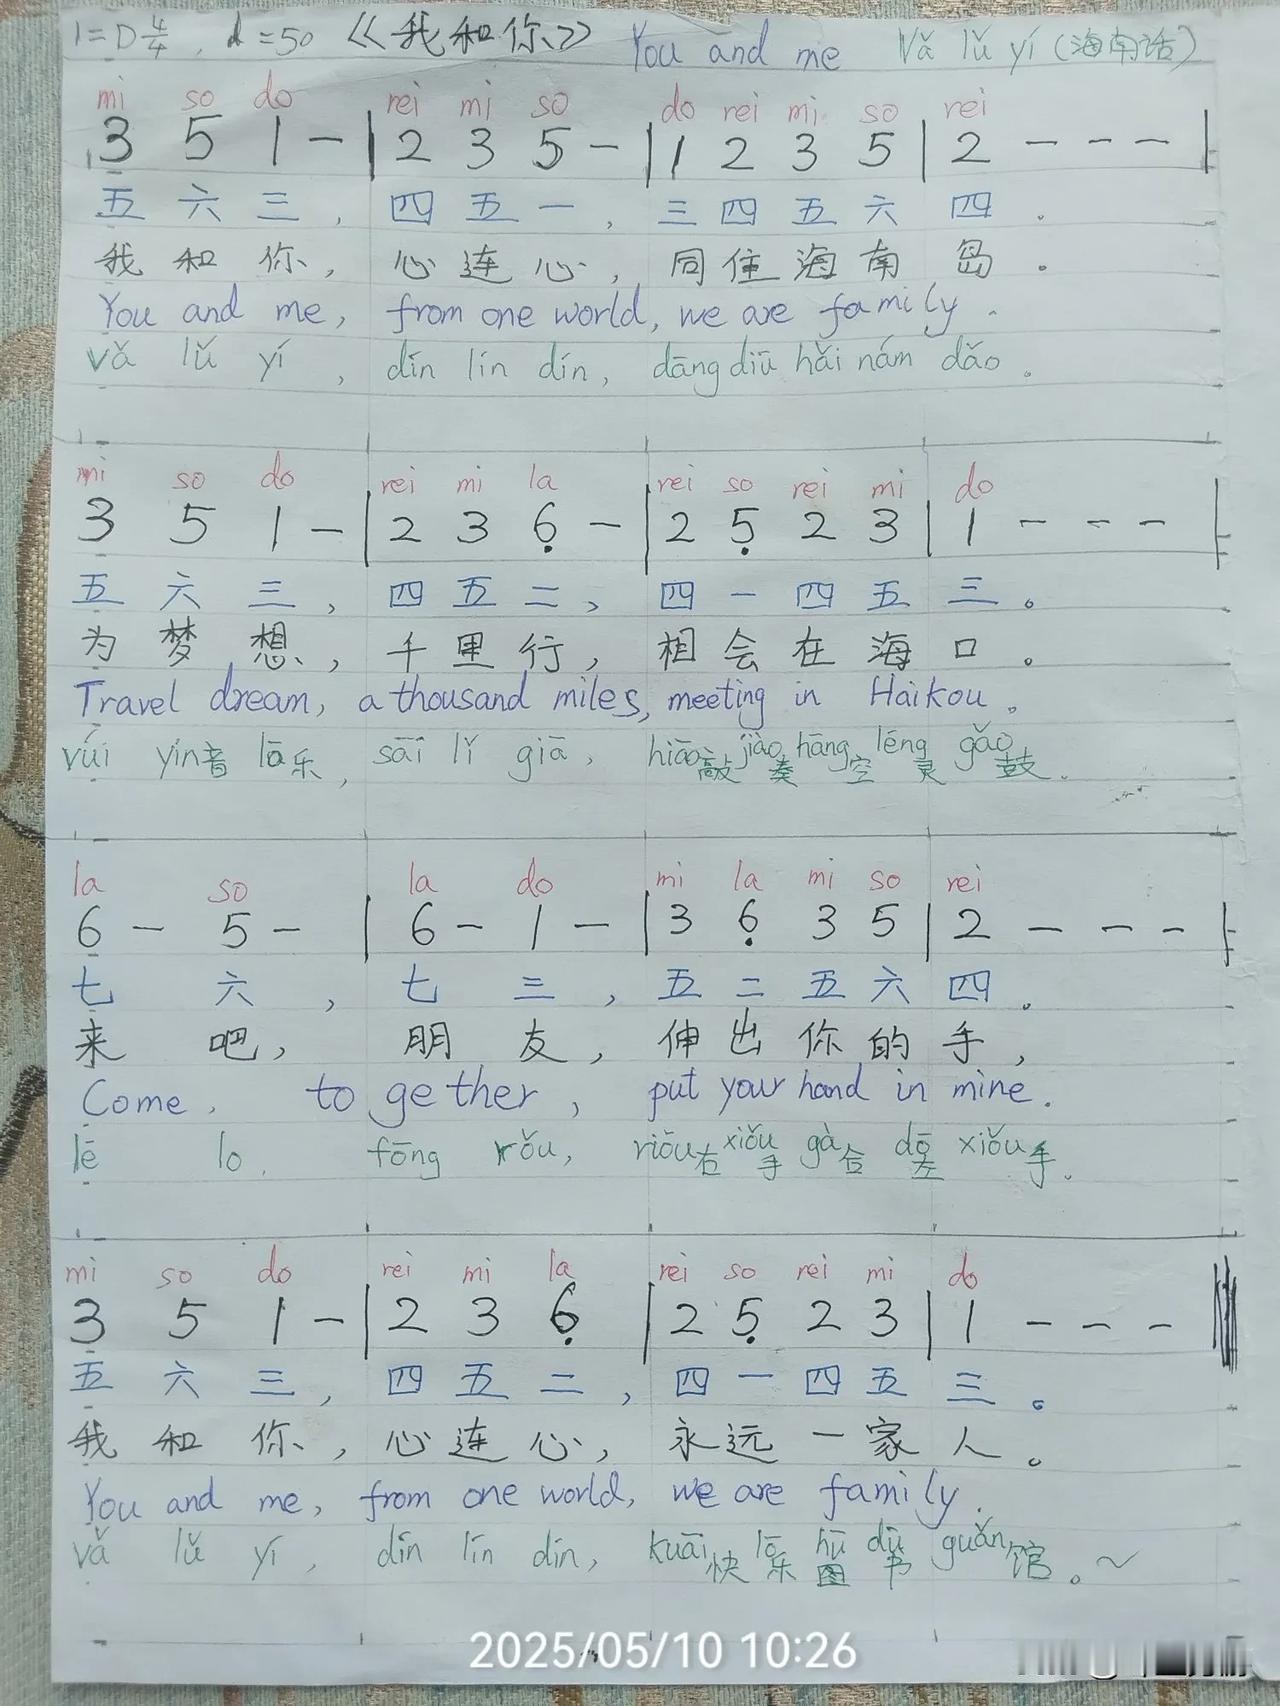 1=D 4/4, d=50 《我和你》 You and me Vǎ lǔ yí (海南话)
mi so do rei mi so do rei mi so rei
3 5 1 - | 2 3 5 - | 1 2 3 5 | 2 - - - |
五 六 三, 四 五 一, 三 四 五 六 四.
我 和 你, 心 连 心, 同 住 海 南 岛.
You and me, from one world, we are family.
vǎ lǔ yí, dín lín dín, dāng diū hǎi nám dǎo.
mi so do rei mi la rei so rei mi do
3 5 1 - | 2 3 6̣ - | 2 5̣ 2 3 | 1 - - - |
五 六 三, 四 五 二, 四 一 四 五 三。
为 梦 想, 千 里 行, 相 会 在 海 口.
Travel dream, a thousand miles, meeting in Haikou.
vúi yín音 lō乐, sāi lǐ giā, hiāo敲 jiào奏 hāng空 léng灵 gǎo鼓.
la so la do mi la mi so rei
6 - 5 - | 6 - 1 - | 3 6̣ 3 5 | 2 - - - |
七 六, 七 三, 五 二 五 六 四.
来 吧, 朋 友, 伸 出 你 的 手,
Come, to ge ther, put your hand in mine.
lē lo, fōng rǒu, riōu右 xiǒu手 gà合 dō左 xiǒu手.
mi so do rei mi la rei so rei mi do
3 5 1 - | 2 3 6̣ | 2 5̣ 2 3 | 1 - - - |
五 六 三, 四 五 二, 四 一 四 五 三。
我 和 你, 心 连 心, 永 远 一 家 人。
You and me, from one world, we are family.
vǎ lǔ yí, dín lín dín, kuāi快 lō乐 hū图 dū书 guǎn馆。~
2025/05/10 10:26